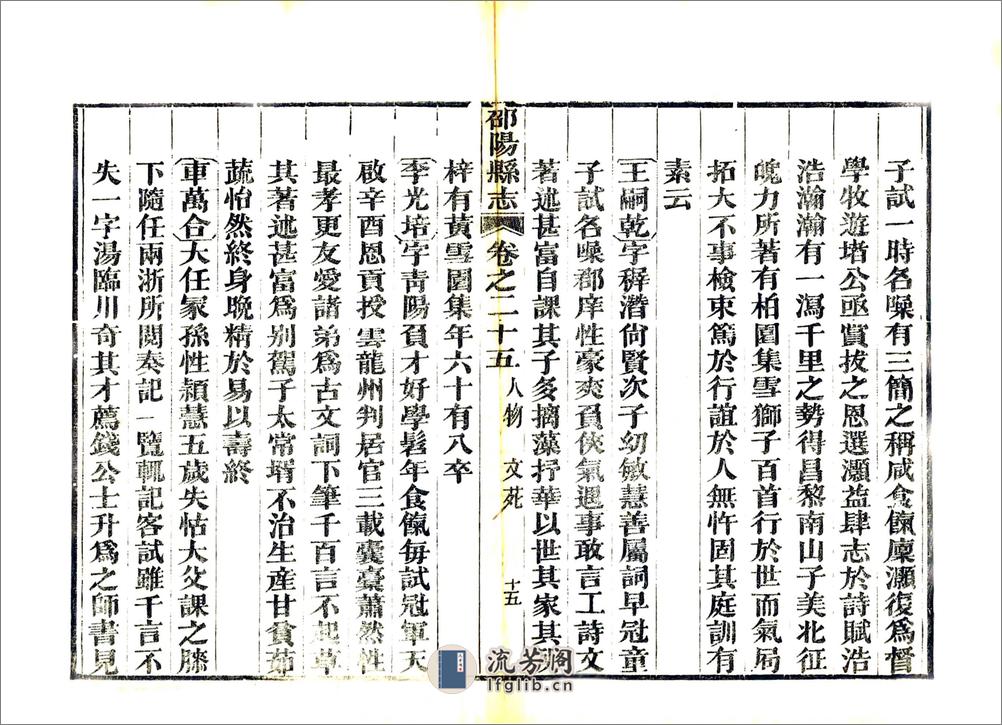 子試一時名噪有三簡之稱咸食餼廩灝復爲督
學牧遊堵公亟賞拔之恩選灝益肆志於詩賦浩
浩瀚瀚有一瀉千里之勢得昌黎南山子美北征
魄力所著有柏園集雪獅子百首行於世而氣局
拓大不事檢束篤於行誼於人無忤固其庭訓有
素云
王嗣乾字穉潛尙賢次子幼敏慧善屬詞早冠童
子試名噪郡庠性豪爽負俠氣遇事敢言工詩文
著述甚富自課其子多摛藻抒華以世其家其
邵陽縣志 卷之二十五 人物 文苑 十五
梓有黃雪園集年六十有八卒
李光培字靑陽負才好學髫年食餼每試冠軍天
啟辛酉恩貢授雲龍州判居官三載囊橐蕭然性
最孝更友愛諸弟爲古文詞下筆千百言不起草
其著述甚富爲别駕子太常壻不治生産甘貧茹
蔬怡然終身晚精於易以壽終
車萬合大任冢孫性穎慧五歲失怙大父課之膝
下隨任兩浙所閱奏記一覽輒記客試雖千言不
失一字湯臨川奇其才薦錢公士升爲之師書見
流芳阁
lfglib.cn